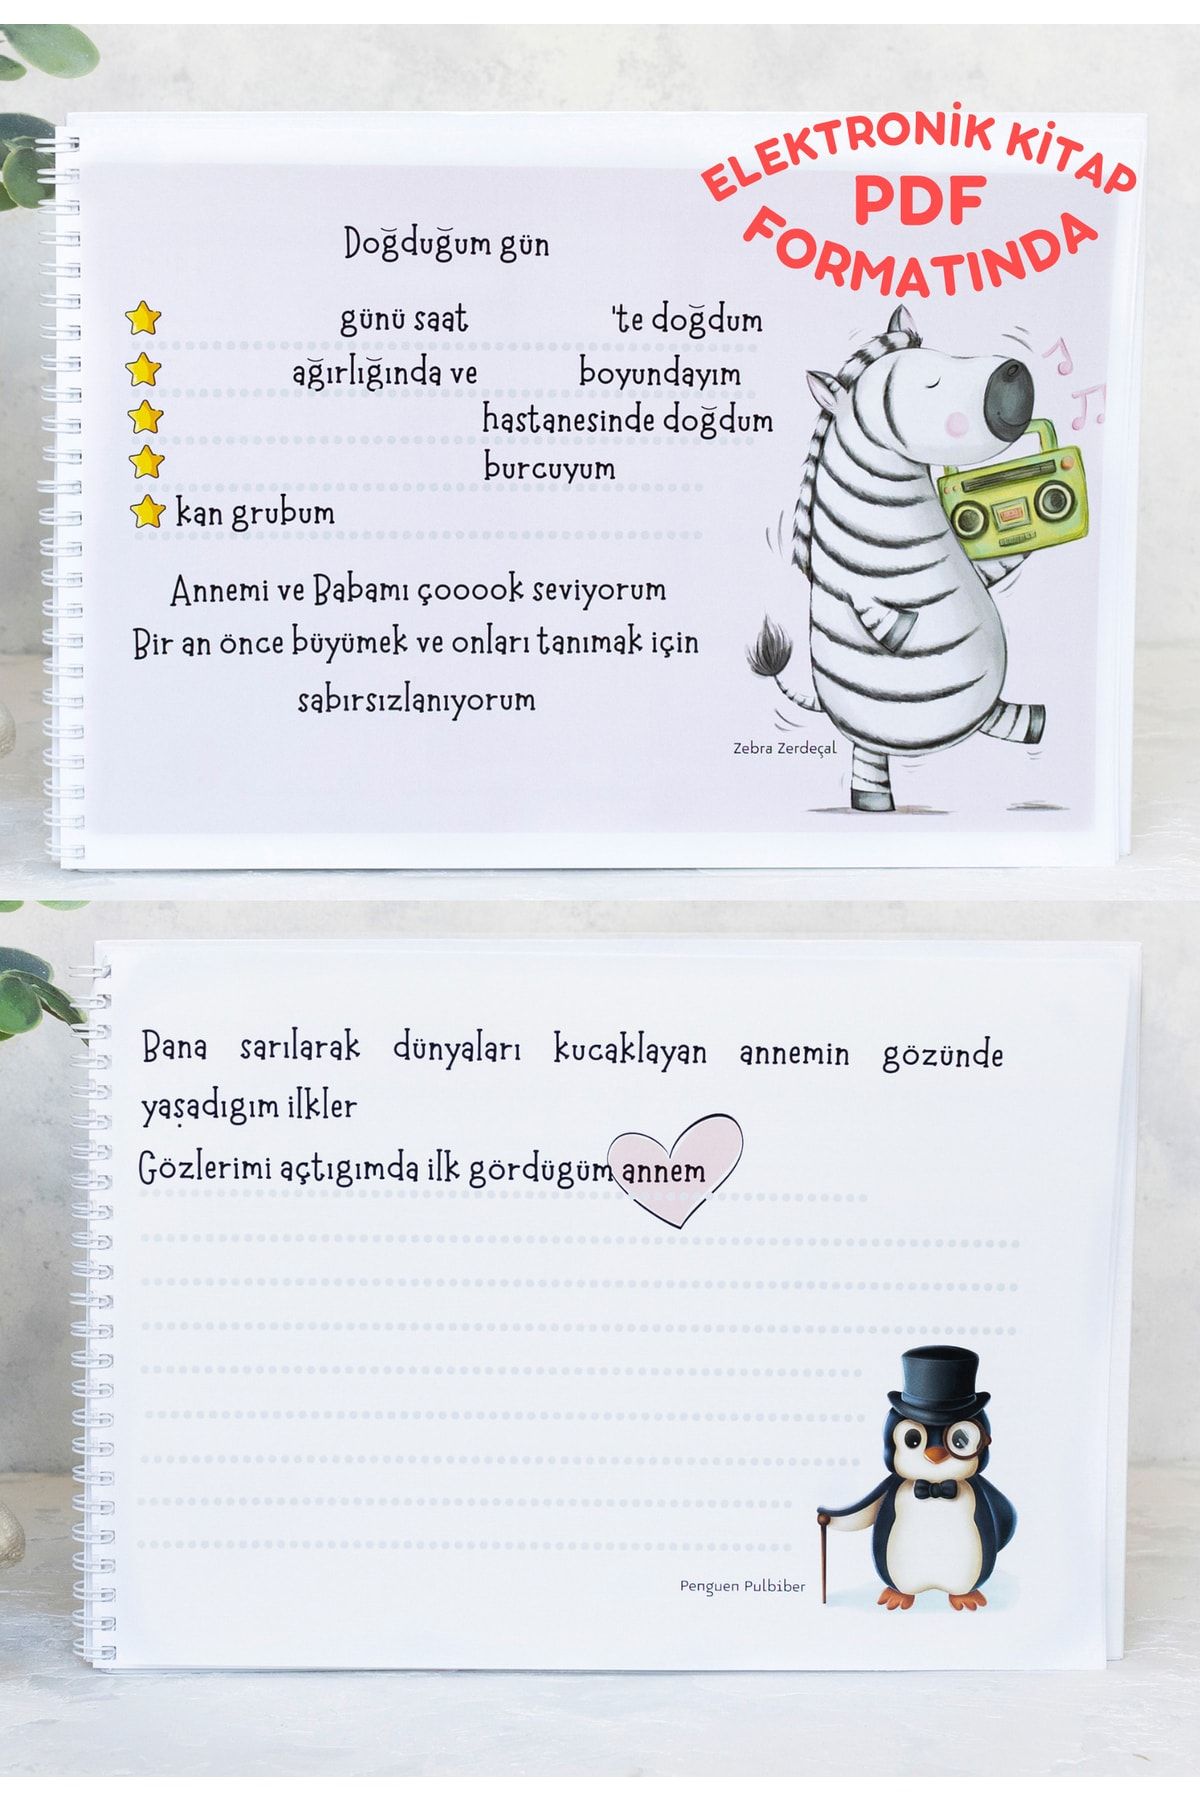 ELEKTRONİK KİTAP
PDF
FORMATINDA
Doğduğum gün
günü saat 'te doğdum
ağırlığında ve boyundayım
hastanesinde doğdum
burcuyum
kan grubum
Annemi ve Babamı çooook seviyorum
Bir an önce büyümek ve onları tanımak için
sabırsızlanıyorum
Zebra Zerdeçal
Bana sarılarak dünyaları kucaklayan annemin gözünde
yaşadıgım ilkler
Gözlerimi açtıgımda ilk gördügüm annem
Penguen Pulbiber